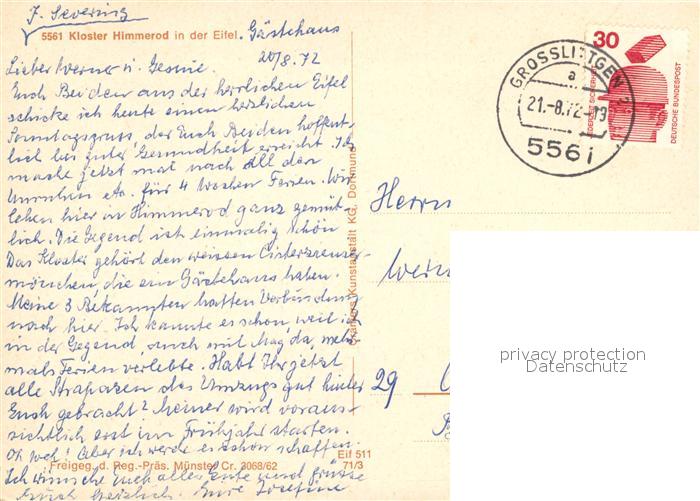 J. Severing
5561 Kloster Himmerod in der Eifel. Gästehaus
20/8. 72
Lieber Werner u. Gesine.
Euch Beiden aus der herrlichen Eifel
schicke ich heute einen herzlichen
Sonntagsgruss, der Euch Beiden hoffent-
lich bei guter Gesundheit erreicht. Ich
mache jetzt mal nach all den
Unruhen etc. für 4 Wochen Ferien. Wir
leben hier in Himmerod ganz gemüt-
lich. Die Gegend ist einmalig schön
Das Kloster gehört den weissen Cisterzienser-
mönchen, die ein Gästehaus haben.
Meine 3 Bekannten hatten Verbindung
nach hier. Ich kannte es schon, weil ich
in der Gegend, auch mit Magda, mehr-
mals Ferien verlebte. Habt Ihr jetzt
alle Strapazen des Umzugs gut hinter
Euch gebracht? Meiner wird voraus-
sichtlich erst im Frühjahr starten.
Oh weh! Aber ich werde es schon schaffen.
Ich wünsche Euch alles Gute und grüsse
Euch herzlich. Eure Josefine
Freigeg. d. Reg.-Präs. Münster Cr. 3068/62
Eif 511
71/3
Crämers Kunstanstalt KG, Dortmund
GROSSLITTGEN
a
21.-8.72-19
5561
30
JEDERZEIT SICHERHEIT
DEUTSCHE BUNDESPOST
Herrn
Wern
29
privacy protection
Datenschutz